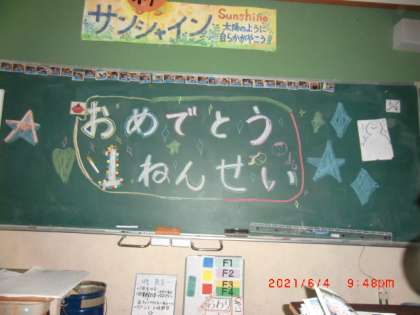 サンシャイン
Sunshine
太陽のように
自らかがやこう!!
おめでとう
1ねんせい
F1
F2
F3
F4
おわり
2021/6/4 9:48pm